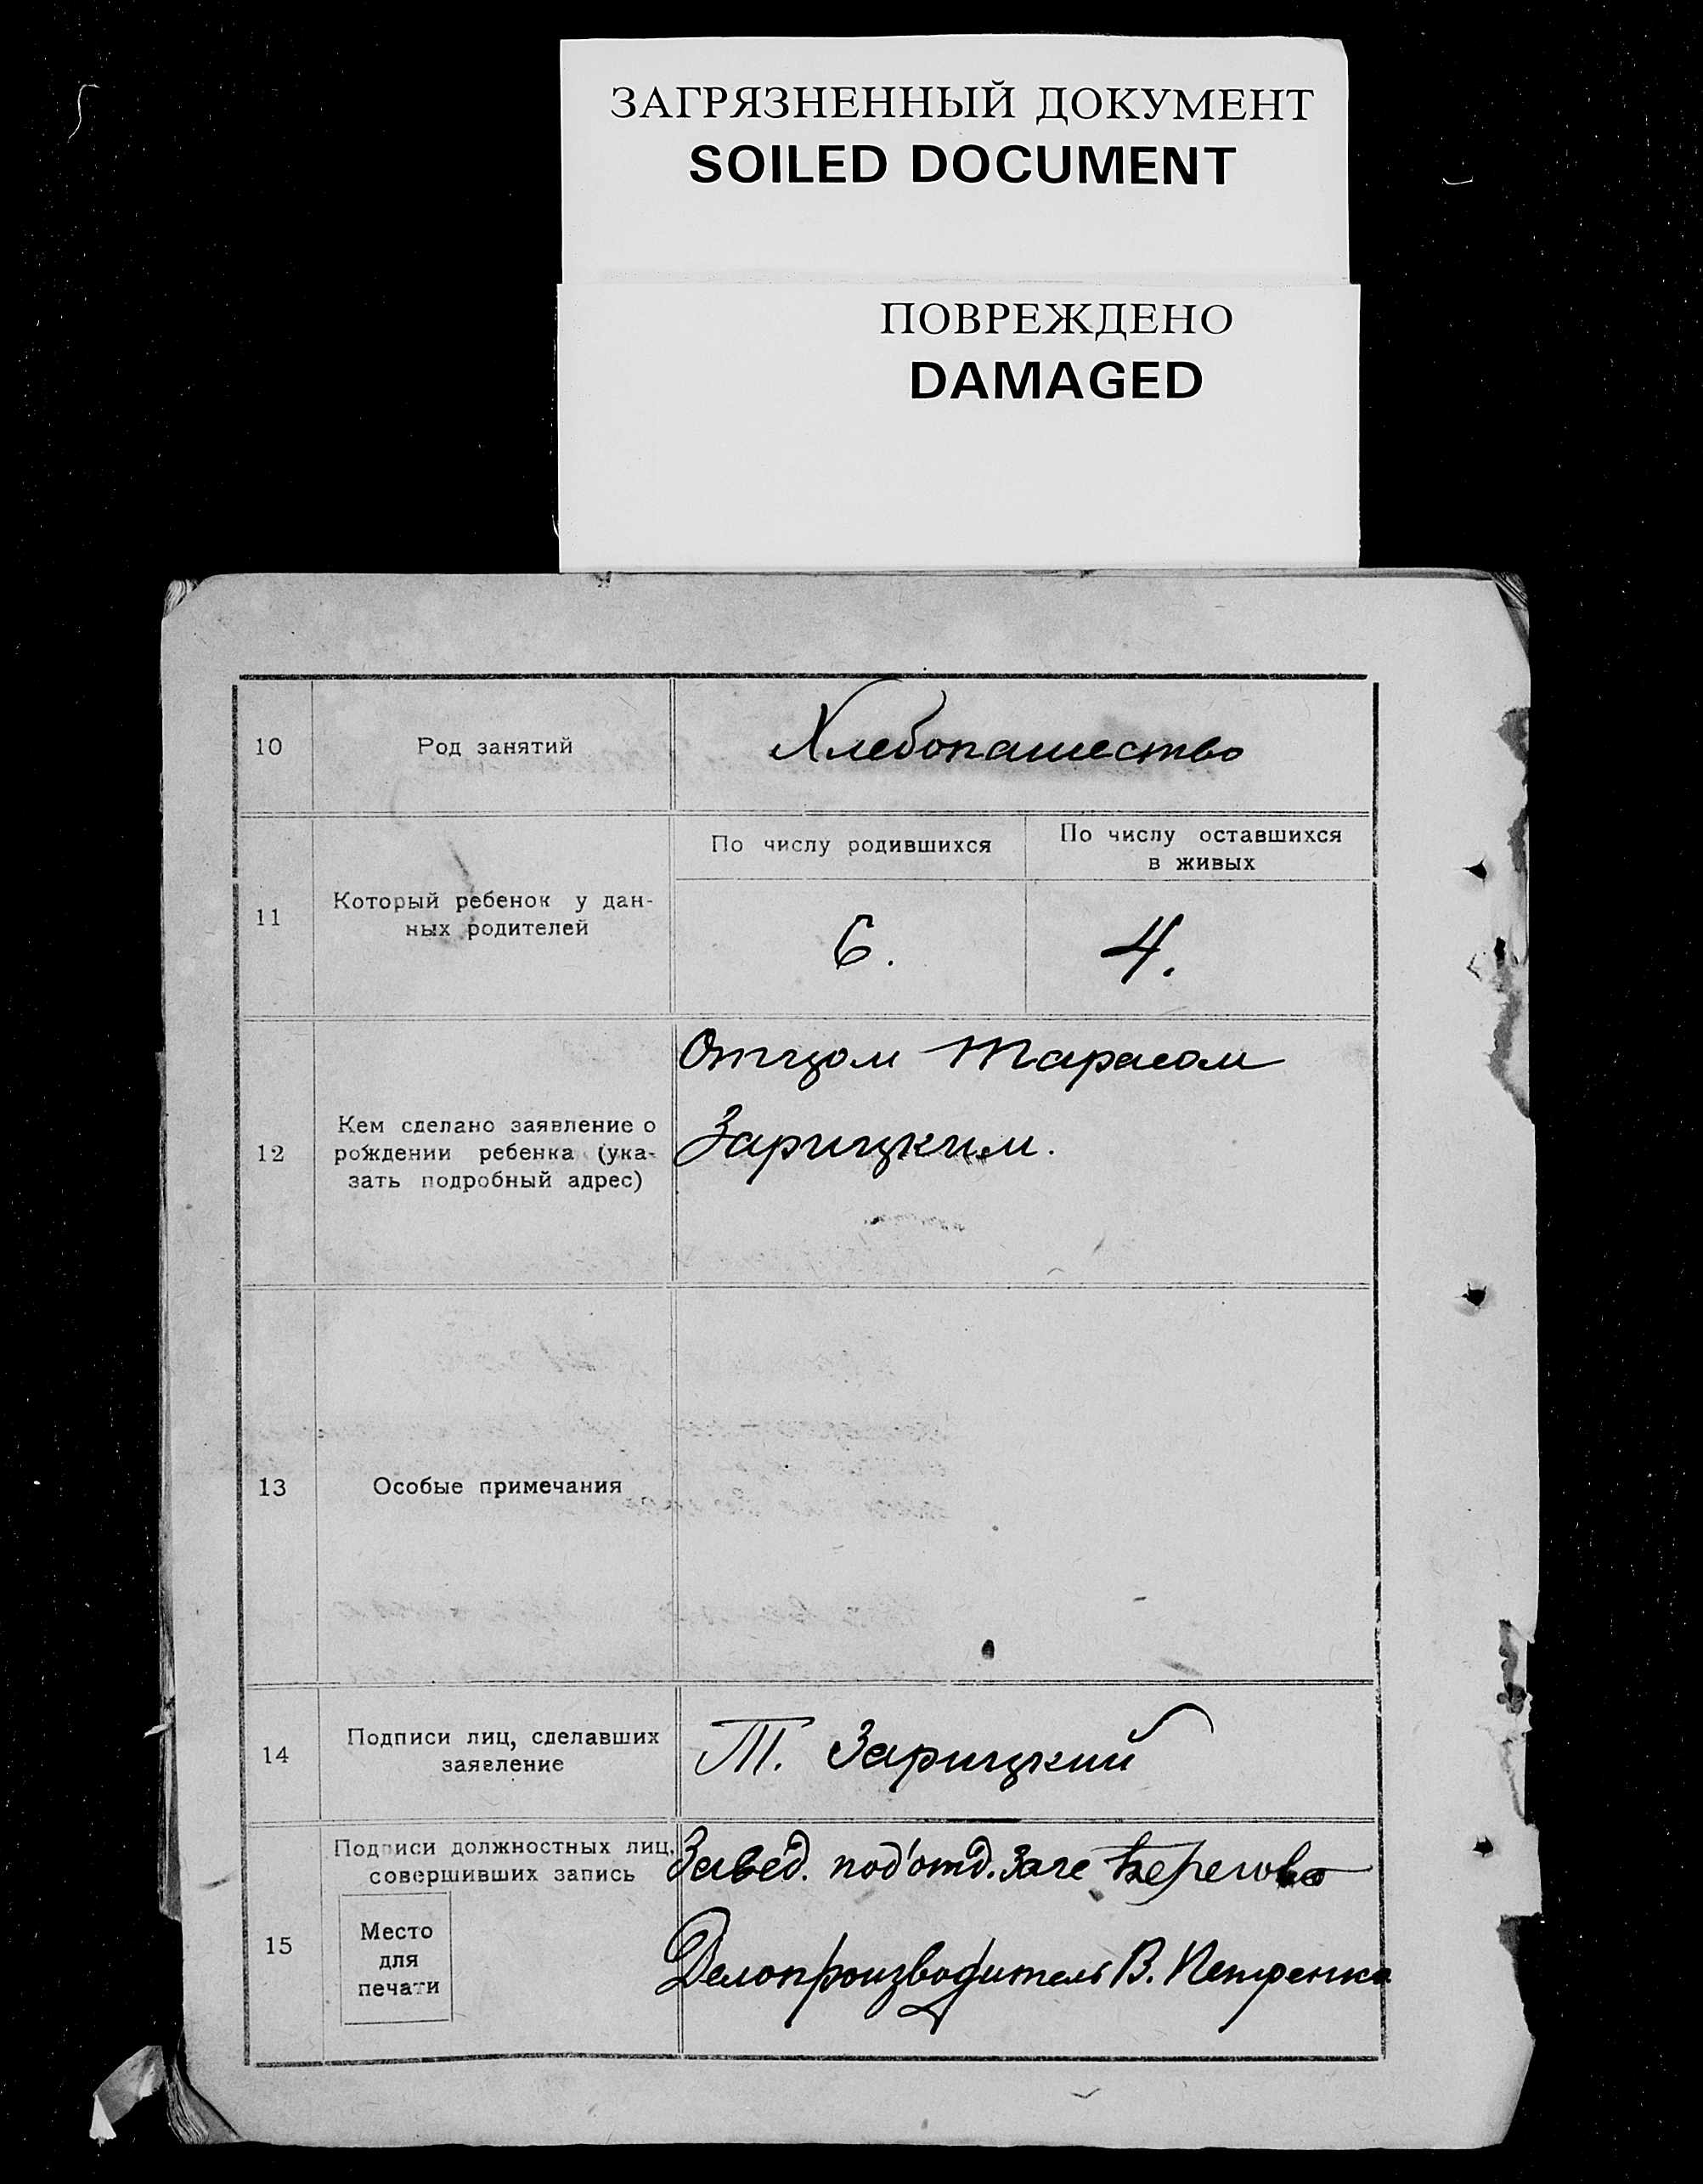 ЗАГРЯЗНЕННЫЙ ДОКУМЕНТ
SOILED DOCUMENT
ПОВРЕЖДЕНО
DAMAGED
10
Род занятий
Хлебопашество
11
Который ребенок у дан-
ных родителей
По числу родившихся
По числу оставшихся
в живых
6.
4.
12
Кем сделано заявление о
рождении ребенка (ука-
зать подробный адрес)
Отцом Тарасом
Зарицким.
13
Особые примечания
14
Подписи лиц, сделавших
заявление
Т. Зарицкий
15
Подписи должностных лиц,
совершивших запись
Место
для
печати
Завед. под'отд. Загс
Делопроизводитель В. Петренко